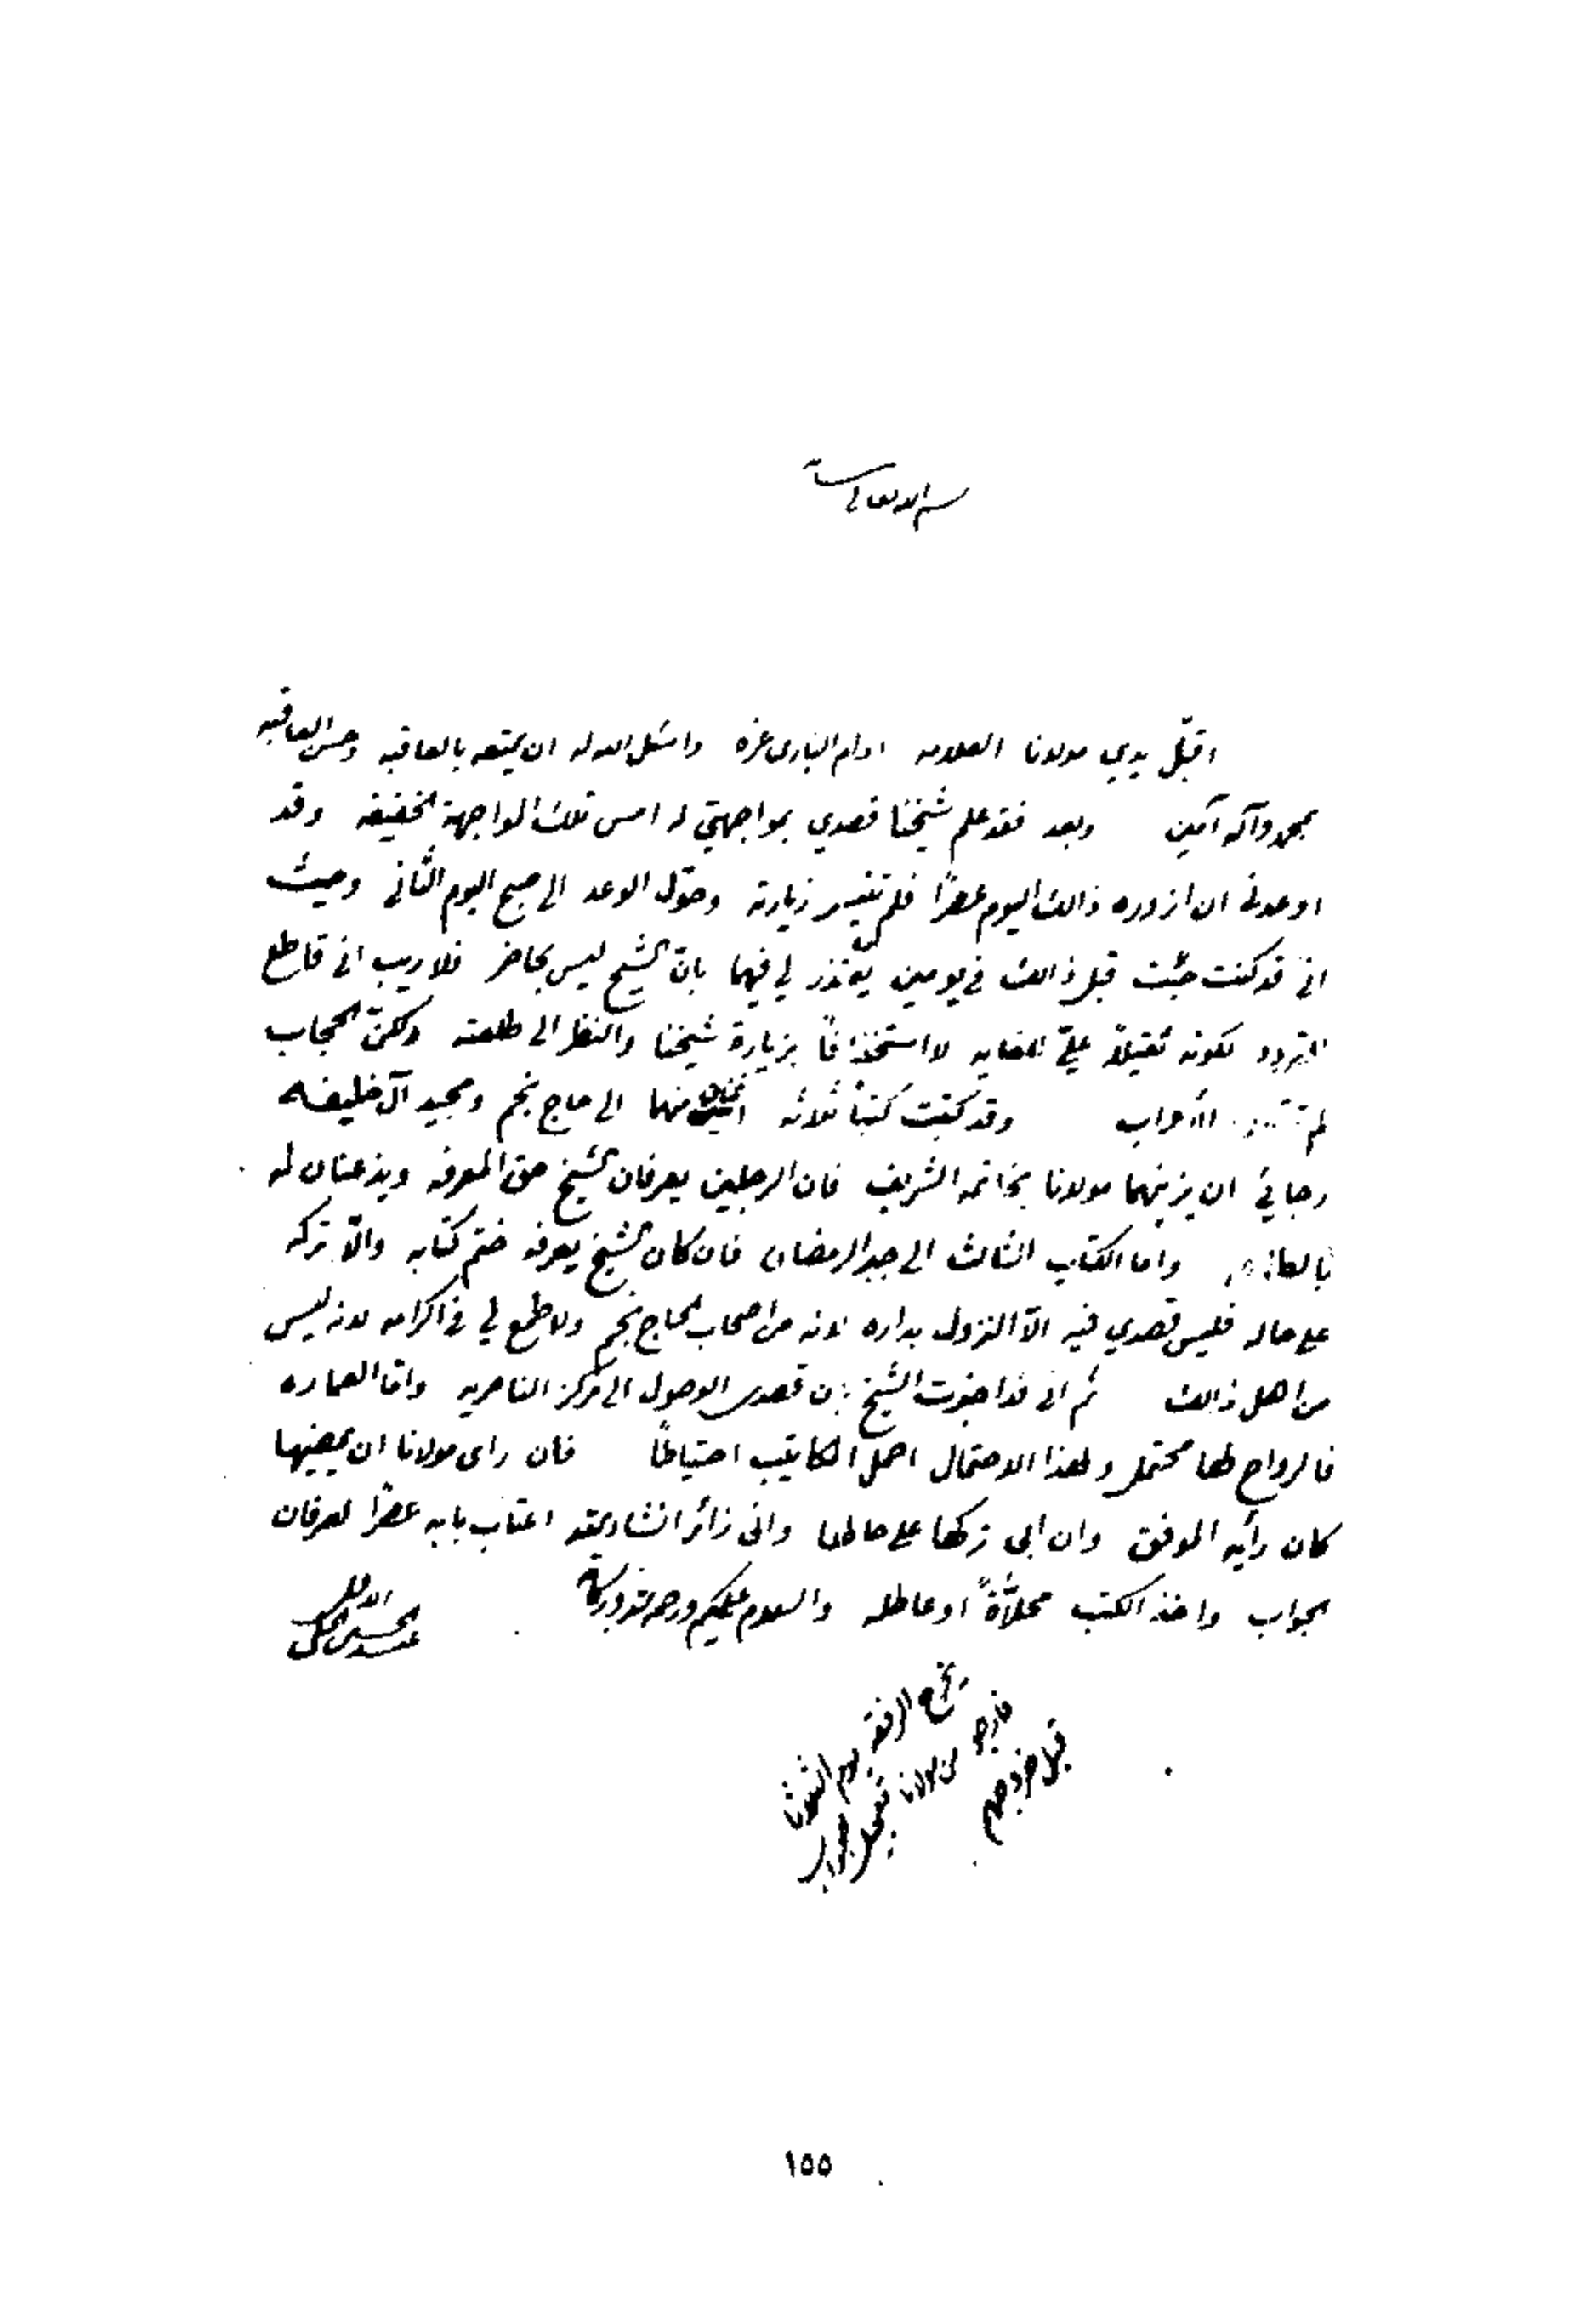 بسم الله تعالى
اقبّل يدي مولانا العلامه ادام الباري عزه واسئل الله له ان يمتعه بالعافيه وحسن العاقبه
بمحمد وآله آمين وبعد فقد علم شيخنا قصدي بمواجهتي له امس تلك المواجهة الخفيفه وقد
اوعدنى ان ازوره ذالك اليوم عصرًا فلم تتيسر زيارته وحوّل الوعد الى صبح اليوم الثّانى وحيث
انى قد كنت جئت قبل ذالك فى يومين يعتذر لي فيهما بانّ الشيخ ليس بحاضر فلا ريب انى قاطع
التردد لكونه ثقيلاً عليّ للغايه لا استخفافاً بزيارة شيخنا والنظر الى طلعته ولكنّ الحجاب
لم الأبواب وقد كتبت كتباً ثلاثه اثنين منها الى حاج نجم ومجيد آل خليفه
رجائي ان يزينهما مولانا بخاتمه الشريف فان الرجلين يعرفان الشيخ حق المعرفه ويذعنان له
واما الكتاب الثالث الى جبد الرمضان فان كان الشيخ يعرفه ختم كتابه والّا تركه
على حاله فليس قصدي فيه الّا النزول بداره لانه من اصحاب الحاج نجم ولا طمع لي فى اكرامه لانه ليس
من اهل ذالك ثم انى قد اخبرت الشيخ بان قصدى الوصول الى مركز الناصريه وامّا العماره
فالرواح لها محتمل ولهذا الاحتمال احمل المكاتيب احتياطاً فان رأى مولانا ان يمضيها
كان رأيه الموفق وان ابى تركها على حالها وانى زائر انشاء الله اعتاب بابه عصرًا لعرفان
الجواب واخذ الكتب محلاّةً او عاطله والسلام عليكم ورحمة الله وبركاته
الاقل
عبد الحسين الحلي
١٥٥